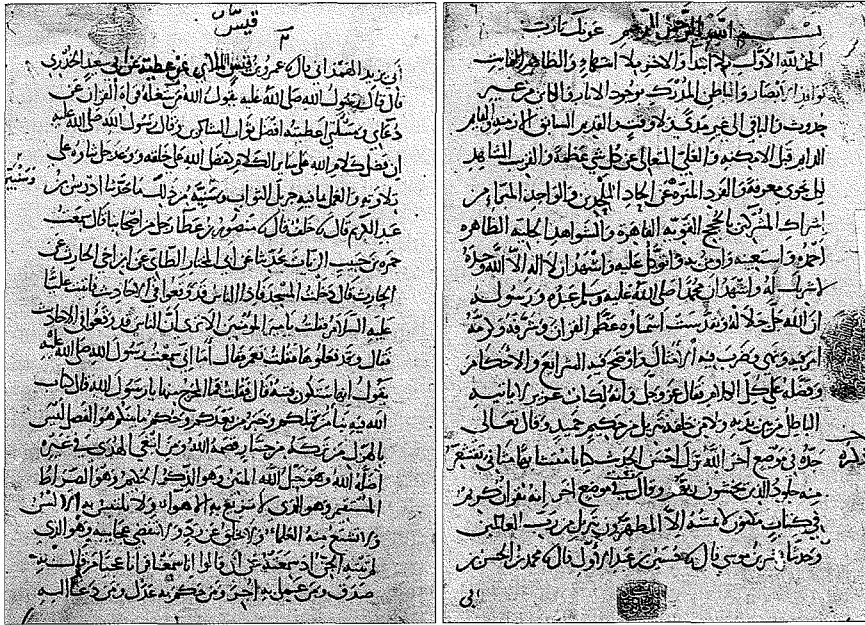 بسم الله الرحمن الرحيم عونك يا رب
الحمد لله الاول بلا ابتدا والاخر بلا انتهاء والظاهر الفايت
نوافذ الابصار والباطن المدرك موجود الاثار والكاين من غير
حدوث والباقي الى غير مدى ولا وقت والقدير السابق الازمنه والقايم
الدايم قبل الامكنه والعلي المتعالي عن كل شي عظمة والقريب المشاهد
لكل نجوى معرفة والفرد المنزه عن الحاد الملحدين والواحد من
اشراك المشركين بالحجج القويه القاهرة والشواهد الجليه الظاهره
احمده واستعينه واومن به واتوكل عليه واشهد ان لا اله الا الله وحده
لا شريك له واشهد ان محمدا صلى الله عليه وسلم عبده ورسوله
ان الله جل جلاله وتقدست اسماوه عظم القران وشرفه وكرمه
امر فيه ونهى وضرب فيه الامثال واوضح فيه الشرايع والاحكام
وفضله على كل الكلام فقال عز وجل وانه لكتاب عزيز لا ياتيه
الباطل من بين يديه ولا من خلفه تنزيل من حكيم حميد وقال تعالى
في موضع اخر الله نزل احسن الحديث كتابا متشابها مثاني تقشعر
منه جلود الذين يخشون ربهم وقال في موضع اخر انه لقران كريم
في كتاب مكنون لا يمسه الا المطهرون تنزيل من رب العالمين
وحدثنا بن موسى قال حسين بن عبد الاول قال محمد بن الحسن بن
ابي
قيس
ابي يزيد الهمداني قال عمرو بن قيس الملايي عن عطيه عن ابي سعيد الخدري
قال قال رسول الله صلى الله عليه يقول الله من شغله قراة القران عن
دعاي ومسئلتي اعطيته افضل ثواب الشاكرين وقال رسول الله صلى الله عليه
ان فضل كلام الله على ساير الكلام كفضل الله على خلقه وعد جل ثناوه على
تلاوته والعمل بما فيه جزيل الثواب ذلك ما حدثنا ادريس بن
عبد الكريم قال خلف قال منصور بن عطا رجل من اصحابنا قال سمعت
حمزه بن حبيب الزيات حدثنا عن ابي المختار الطاي عن ابن اخي الحارث عن
الحارث قال دخلت المسجد فاذا الناس قد وقعوا في الاحاديث فاتيت عليا
عليه السلام فقلت يا امير المومنين الا ترى ان الناس قد وقعوا في الاحاديث
فقال وقد فعلوها فقلت نعم فقال اما اني سمعت رسول الله صلى الله عليه
يقول انها ستكون فتنة قال قلت فما المخرج منها يا رسول الله قال كتاب
الله فيه نبا من قبلكم وخبر من بعدكم وحكم ما بينكم هو الفصل ليس
بالهزل من تركه من جبار قصمه الله ومن ابتغى الهدى في غيره
اضله الله وهو حبل الله المتين وهو الذكر الحكيم وهو الصراط
المستقيم وهو الذي لا تزيغ به الاهوا ولا تلتبس به الالسن
ولا تشبع منه العلما ولا يخلق عن رد ولا تنقضي عجايبه وهو الذي
لم تنته الجن اذ سمعته عن ان قالوا انا سمعنا قرانا عجبا من قال به
صدق ومن عمل به اجر ومن حكم به عدل ومن دعا اليه